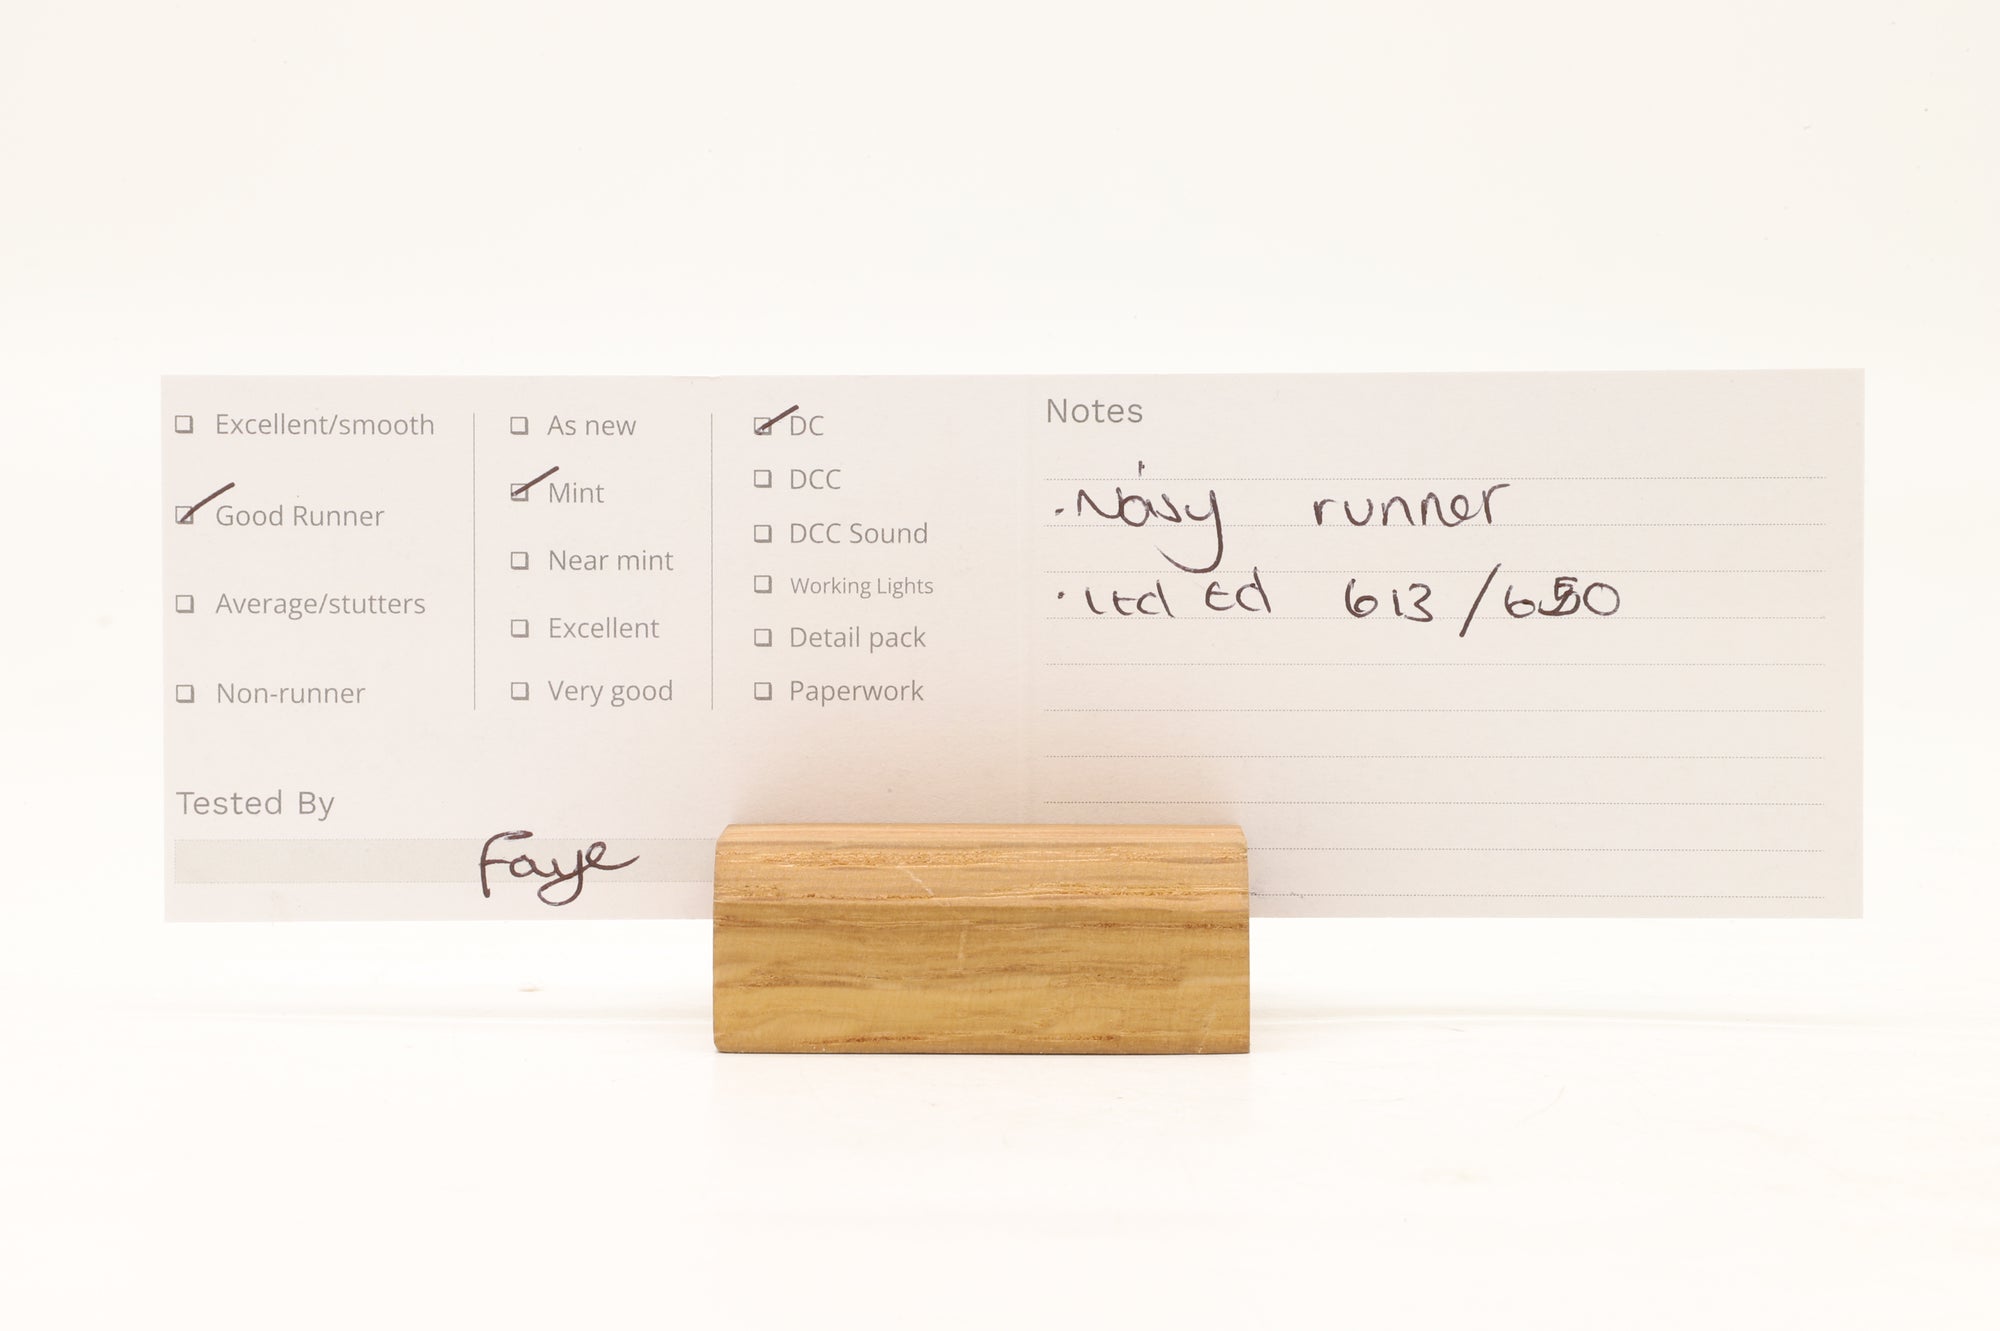 Excellent/smooth
Good Runner
Average/stutters
Non-runner
As new
Mint
Near mint
Excellent
Very good
DC
DCC
DCC Sound
Working Lights
Detail pack
Paperwork
Tested By
Faye
Notes
· Noisy runner
· Ltd Ed 613/650